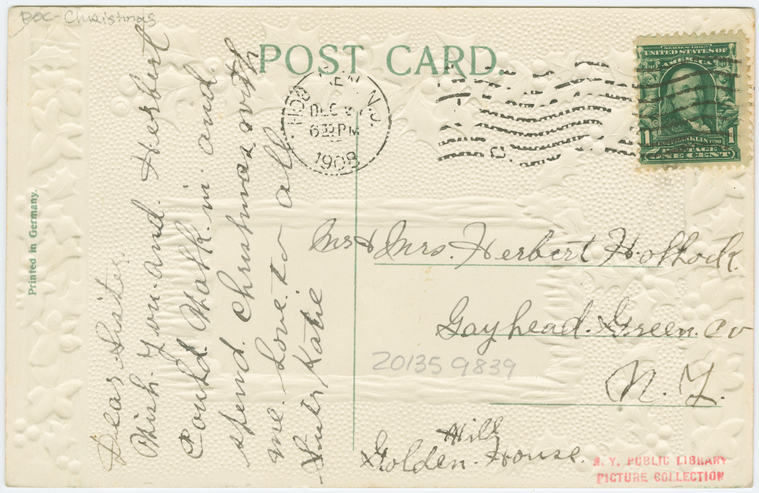 POC-Christmas
POST CARD
Printed in Germany.
NEW N.J.
DEC
6 PM
1908
SERIES 1902
UNITED STATES OF AMERICA
1 1
FRANKLIN
POSTAGE
ONE CENT
Dear Sister.
Wish you and Herbert
Could Walk in and
spend Christmas with
me. Love to all
Katie
Mr & Mrs. Herbert
Gayhead. Green. Co
N. Y.
20135 9839
Hill
Golden House.
N. Y. PUBLIC LIBRARY
PICTURE COLLECTION